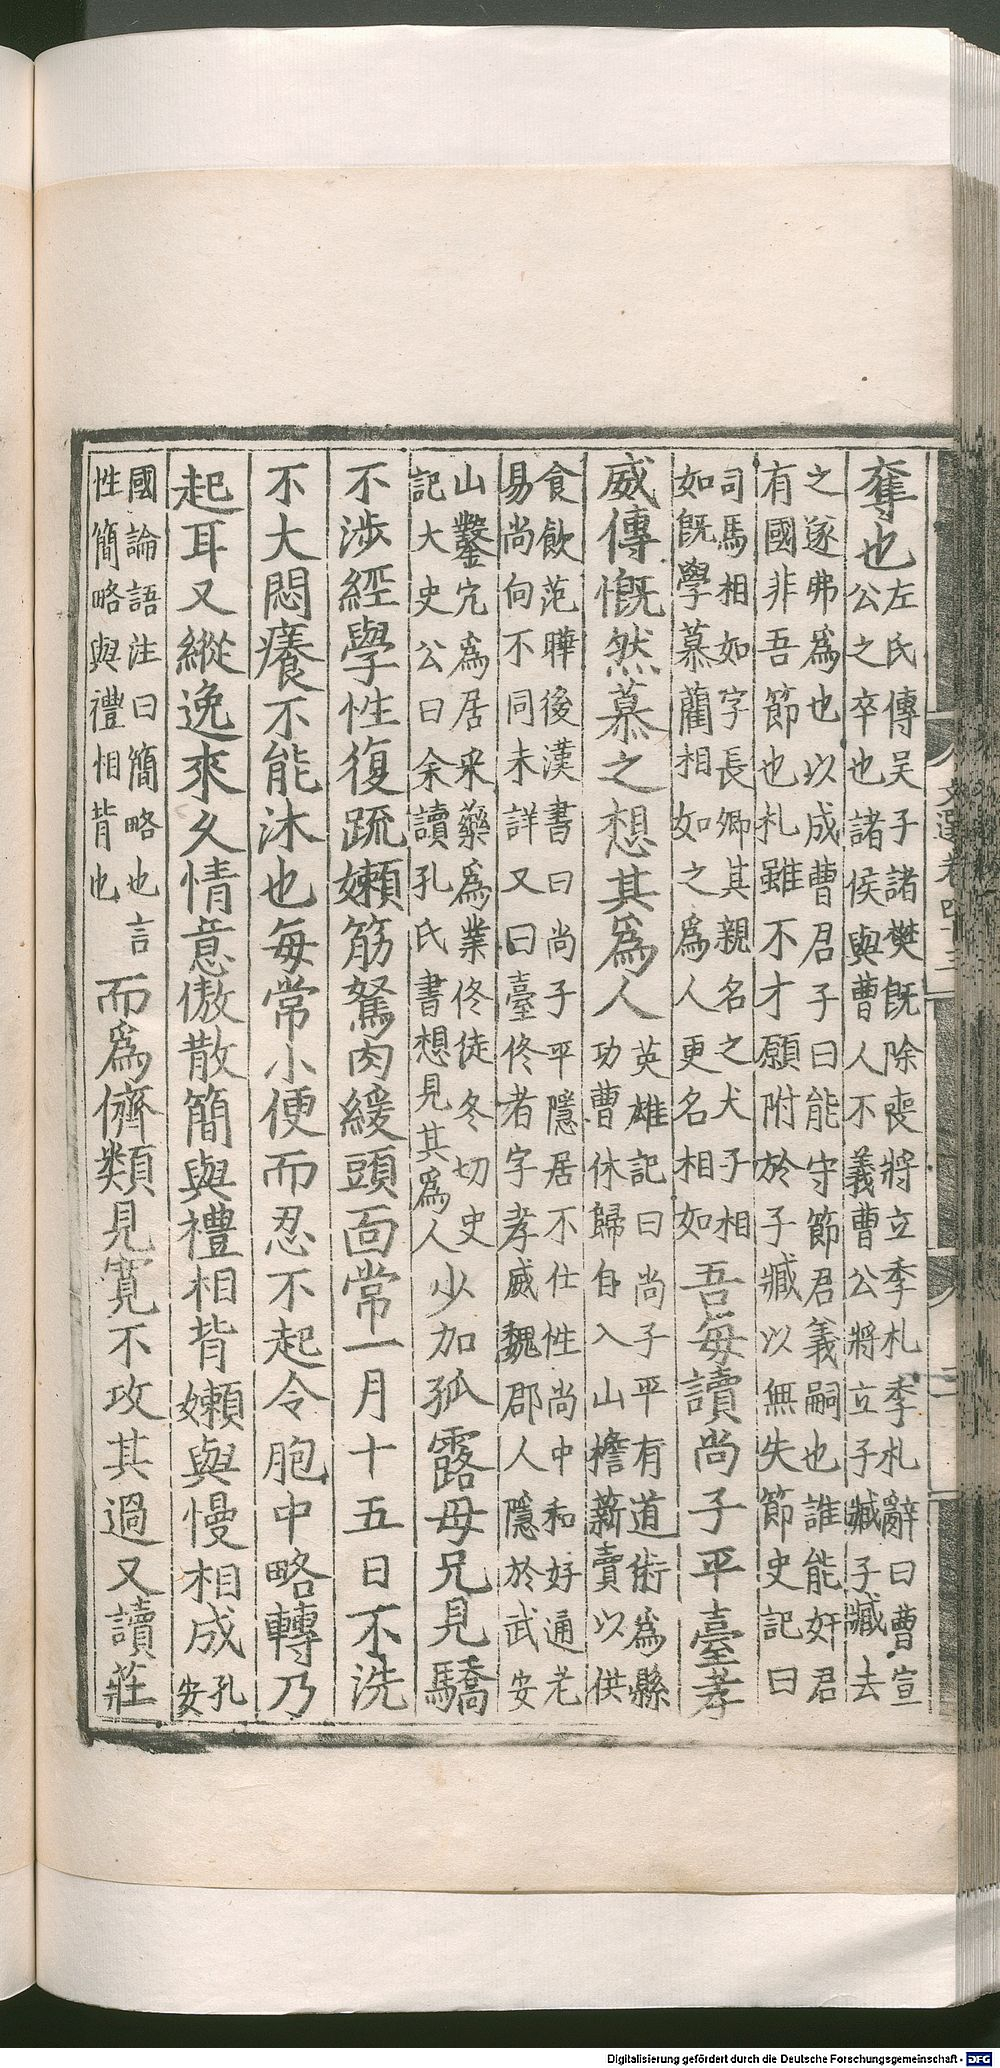 奪也左氏傳吴子諸樊旣除喪將立季札季札辭曰曹宣
公之卒也諸侯與曹人不義曹公將立子臧子臧去
之遂弗爲也以成曹君子曰能守節君義嗣也誰能奸君
有國非吾節也札雖不才願附於子臧以無失節史記曰
司馬相如字長卿其親名之犬子相
如旣學慕藺相如之爲人更名相如
吾每讀尚子平臺孝
威傳慨然慕之想其爲人英雄記曰尚子平有道術爲縣
功曹休歸自入山檐薪賣以供
食飲范曄後漢書曰尚子平隱居不仕性尚中和好通老
易尚向不同未詳又曰臺佟者字孝威魏郡人隱於武安
山鑿宂爲居采藥爲業佟徒冬切史
記大史公曰余讀孔氏書想見其爲人
少加孤露母兄見驕
不涉經學性復疏嬾筋駑肉緩頭面常一月十五日不洗
不大悶癢不能沐也每常小便而忍不起令胞中略轉乃
起耳又縱逸來久情意傲散簡與禮相背嬾與慢相成孔
安
國論語注曰簡略也言
性簡略與禮相背也
而爲儕類見寬不攻其過又讀莊
文選卷四十三
Digitalisierung gefördert durch die Deutsche Forschungsgemeinschaft - DFG